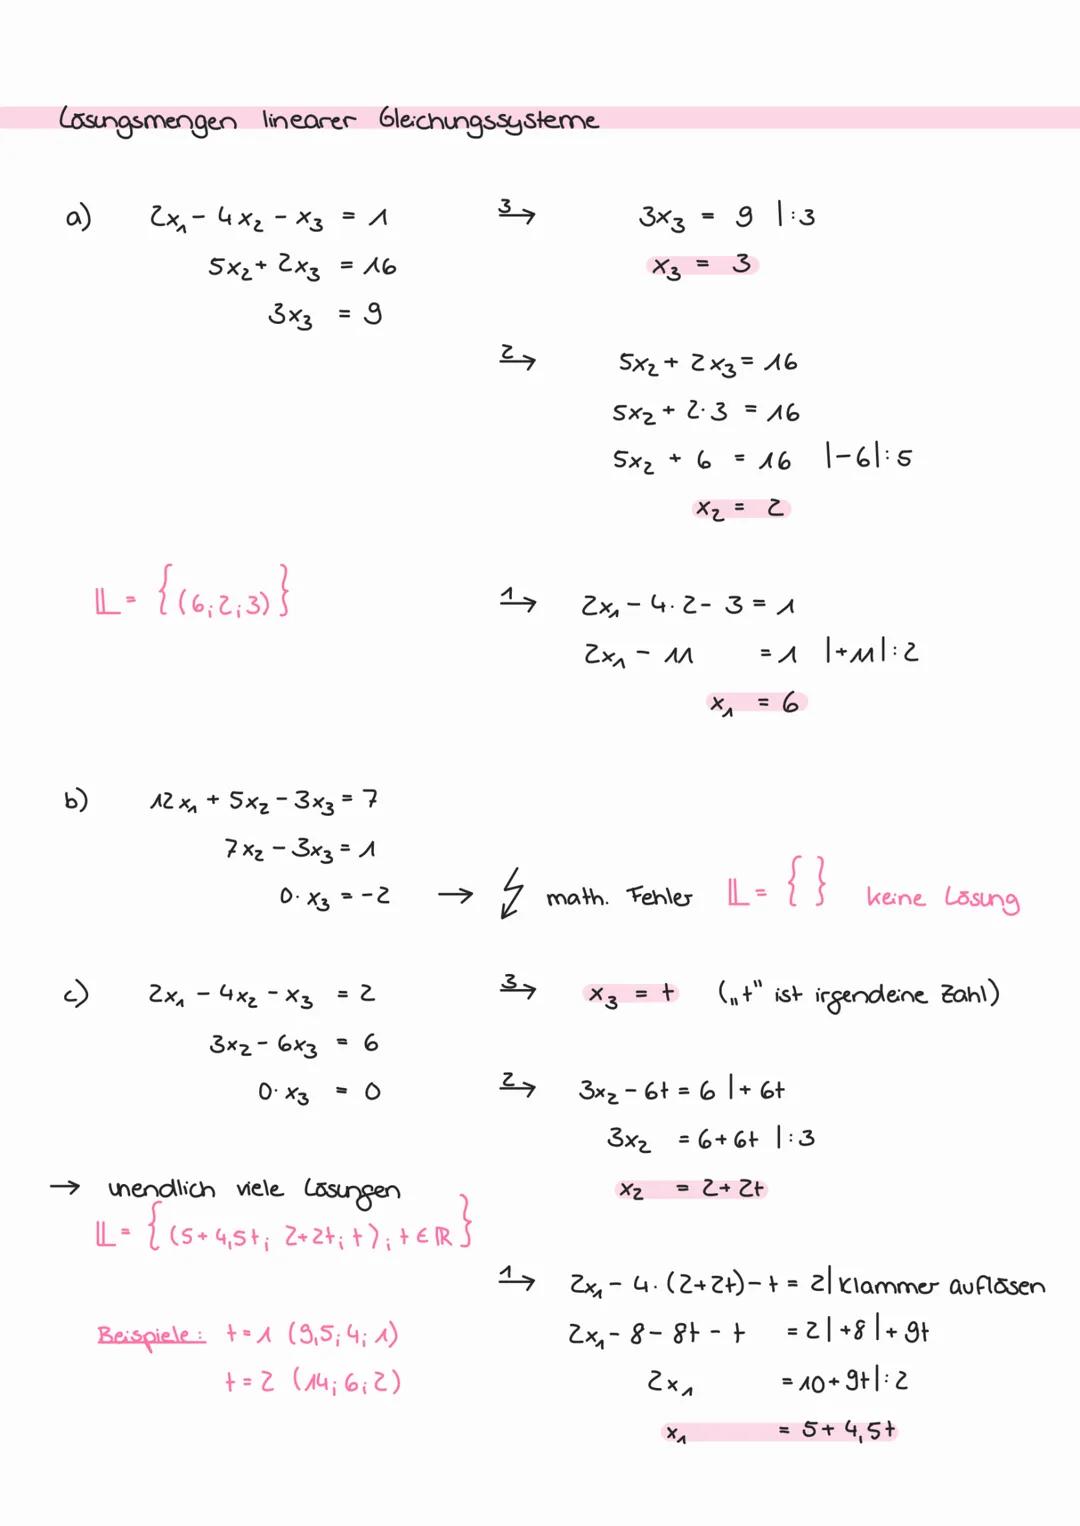 Lösungsmengen linearer Gleichungssysteme
a) 2x₁ - 4x₂ - x₃ = 1
5x₂ + 2x₃ = 16
3x₃ = 9
3→ 3x₃ = 9 |:3
x₃ = 3
2→ 5x₂ + 2x₃ = 16
5x₂ + 2·3 = 16
5x₂ + 6 = 16 |-6|:5
x₂ = 2
𝕃 = {(6;2;3)}
1→ 2x₁ - 4·2 - 3 = 1
2x₁ - 11 = 1 |+11|:2
x₁ = 6
b) 12x₁ + 5x₂ - 3x₃ = 7
7x₂ - 3x₃ = 1
0·x₃ = -2 → ↯ math. Fehler 𝕃 = { } keine Lösung
c) 2x₁ - 4x₂ - x₃ = 2
3x₂ - 6x₃ = 6
0·x₃ = 0
3→ x₃ = t („t" ist irgendeine Zahl)
2→ 3x₂ - 6t = 6 |+ 6t
3x₂ = 6+6t |:3
x₂ = 2+2t
→ unendlich viele Lösungen
𝕃 = {(5+4,5t; 2+2t; t); t ∈ ℝ}
1→ 2x₁ - 4·(2+2t) - t = 2 | Klammer auflösen
2x₁ - 8 - 8t - t = 2 |+8 |+9t
2x₁ = 10+9t |:2
x₁ = 5+4,5t
Beispiele: t=1 (9,5; 4; 1)
t=2 (14; 6; 2)